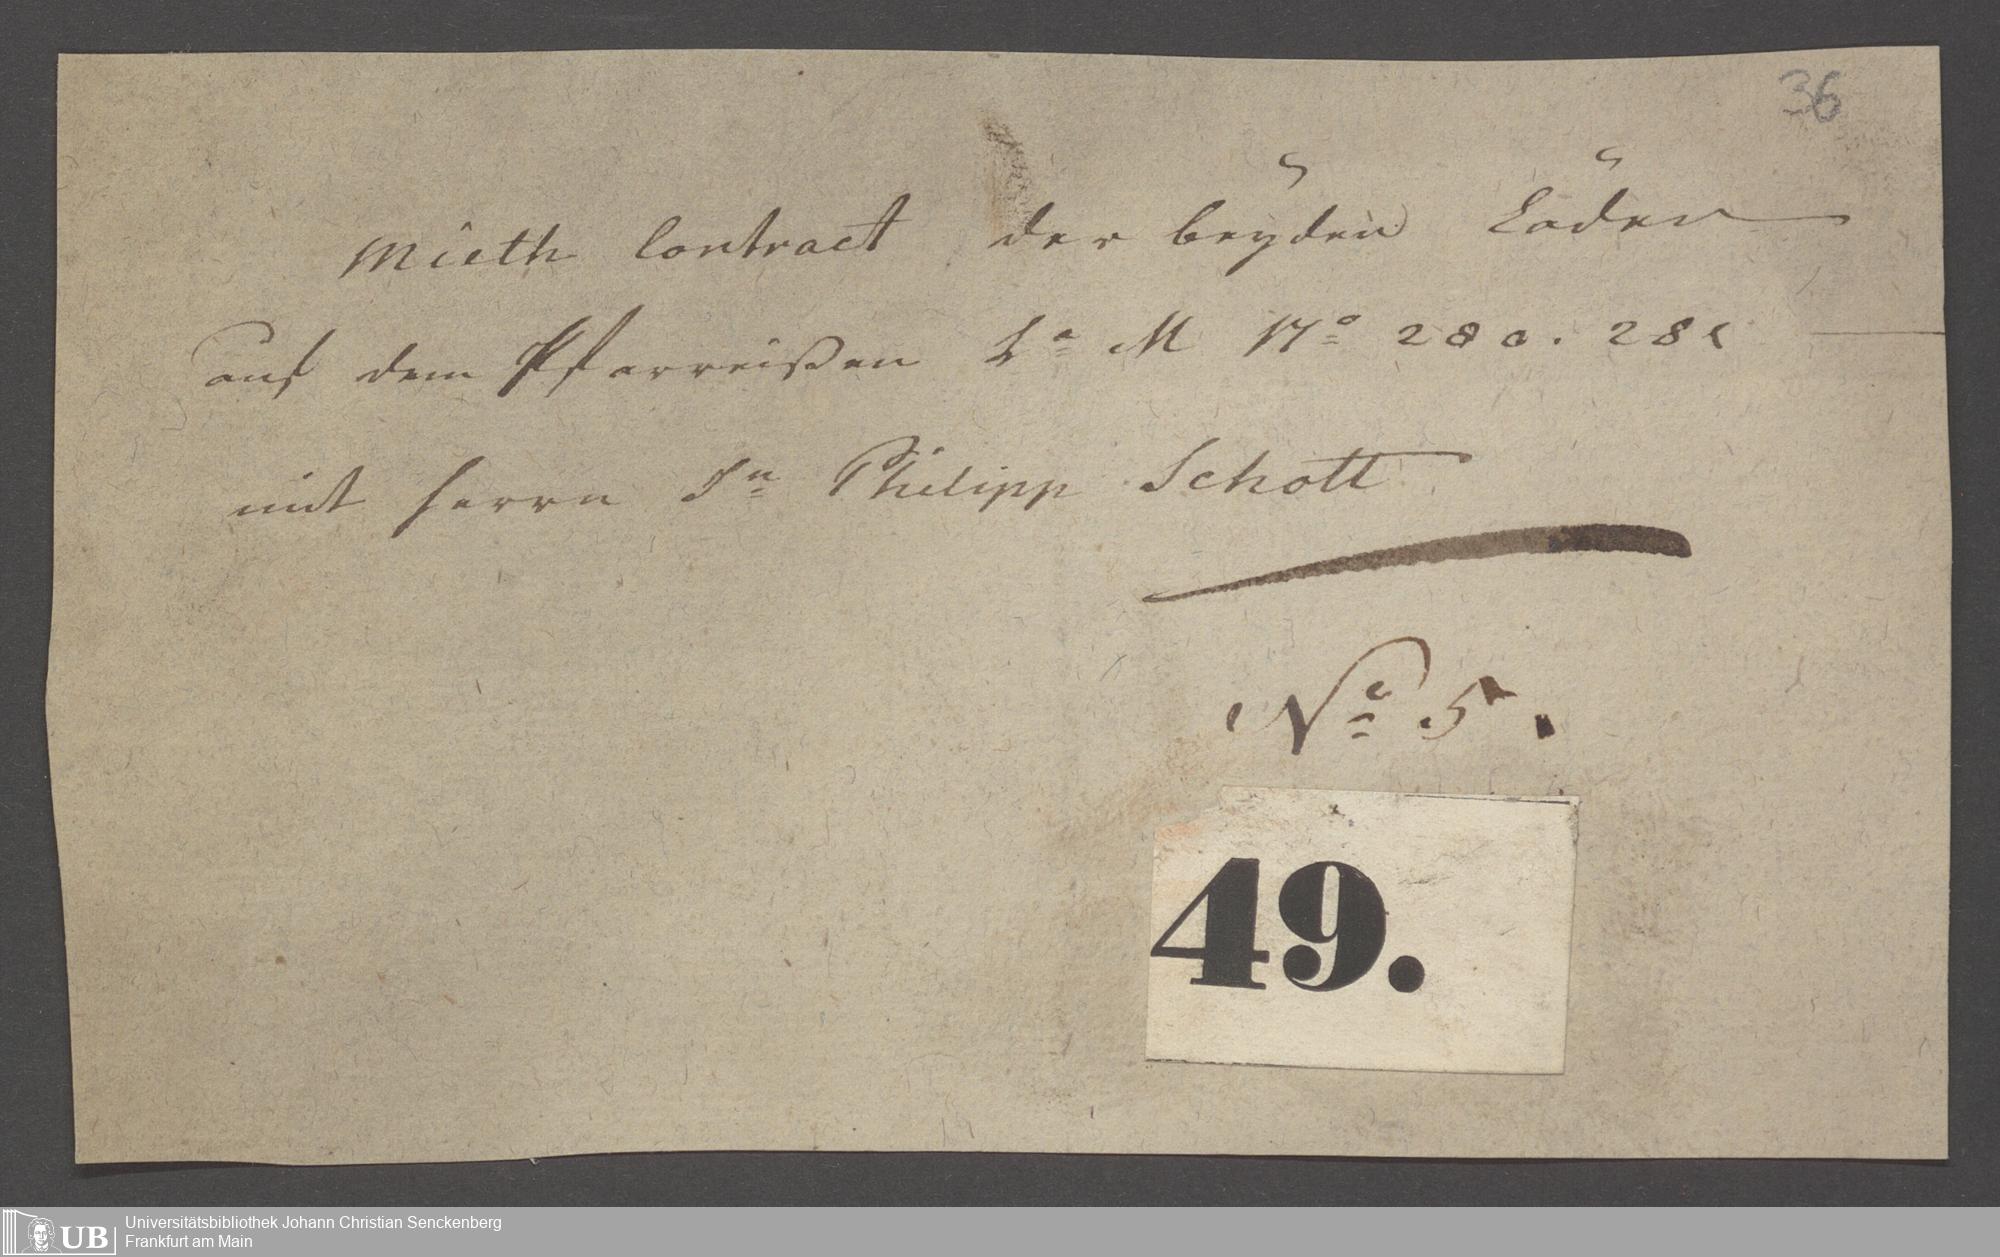 36
Mieth Contract der beyden Läden
auf dem Pfarreißen La M No 280. 281
mit Herrn Jn Philipp Schott
No 5.
49.
UB Universitätsbibliothek Johann Christian Senckenberg
Frankfurt am Main